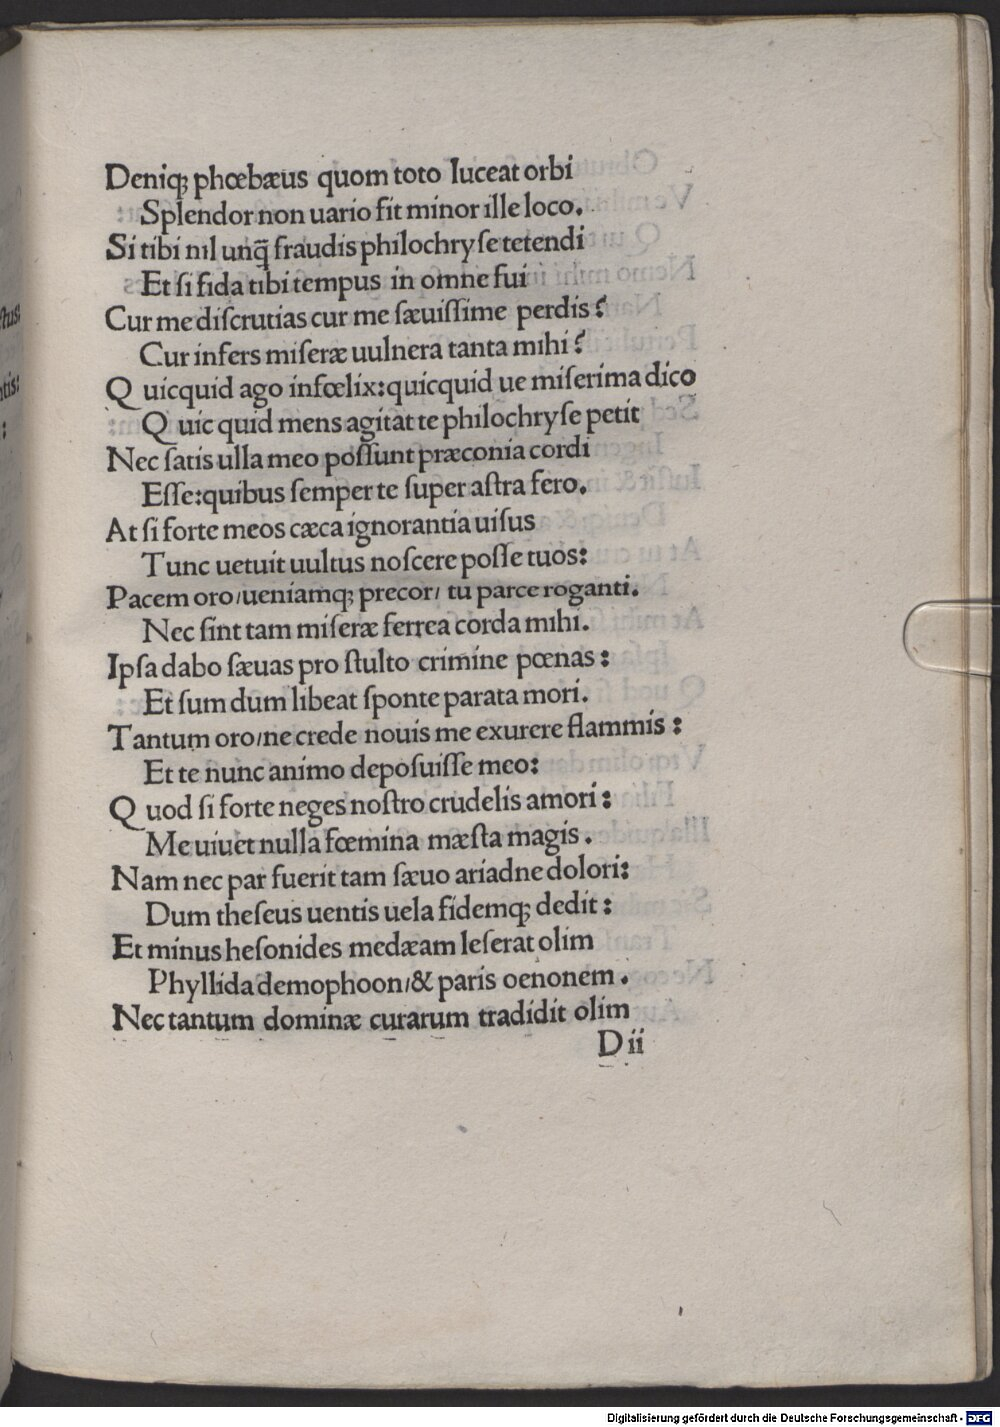 Deniqꝫ phœbæus quom toto luceat orbi
Splendor non uario fit minor ille loco.
Si tibi nil unq̃ fraudis philochryſe tetendi
Et ſi fida tibi tempus in omne fui
Cur me diſcrutias cur me ſæuiſſime perdis?
Cur infers miſeræ uulnera tanta mihi?
Q uicquid ago infœlix:quicquid ue miſerima dico
Q uic quid mens agitat te philochryſe petit
Nec ſatis ulla meo poſſunt præconia cordi
Eſſe:quibus ſemper te ſuper aſtra fero.
At ſi forte meos cæca ignorantia uiſus
Tunc uetuit uultus noſcere poſſe tuos:
Pacem oro/ueniamqꝫ precor/ tu parce roganti.
Nec ſint tam miſeræ ferrea corda mihi.
Ipſa dabo ſæuas pro ſtulto crimine pœnas:
Et ſum dum libeat ſponte parata mori.
Tantum oro/ne crede nouis me exurere flammis:
Et te nunc animo depoſuiſſe meo:
Q uod ſi forte neges noſtro crudelis amori:
Me uiuet nulla fœmina mæſta magis.
Nam nec par fuerit tam ſæuo ariadne dolori:
Dum theſeus uentis uela fidemqꝫ dedit:
Et minus heſonides medæam leſerat olim
Phyllida demophoon/& paris oenonem.
Nec tantum dominæ curarum tradidit olim
D ii
Digitalisierung gefördert durch die Deutsche Forschungsgemeinschaft - DFG